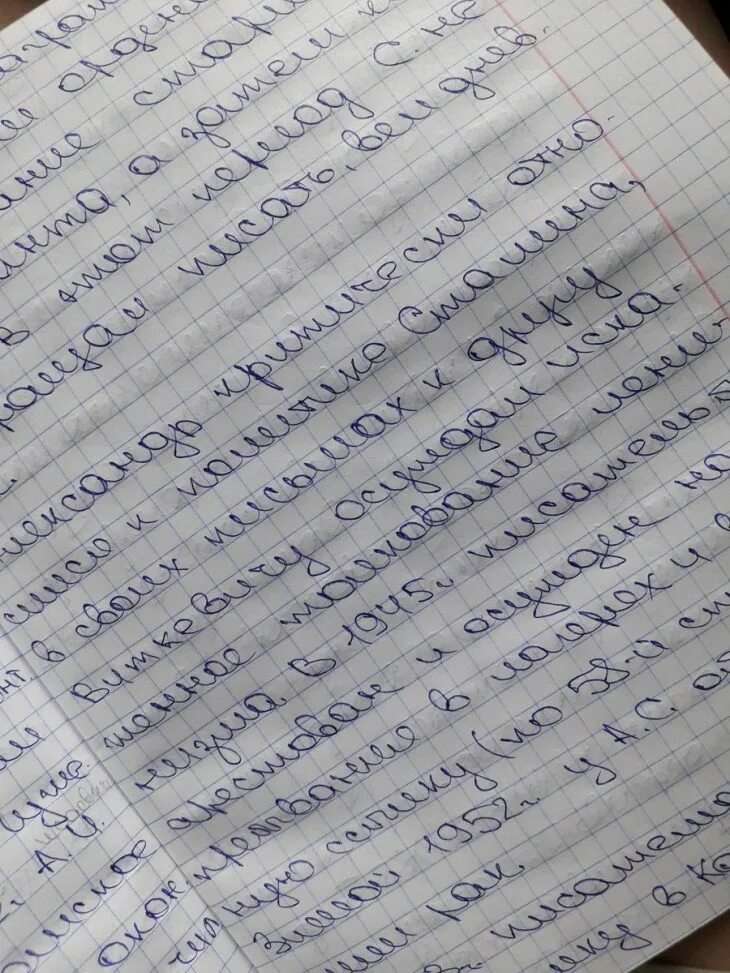 орден
ание стар
анта, а затем к
в этот период С. на
рацал писать, вел днев.
лександр критически отно-
сился к политике Сталина,
в своих письмах к другу
Виткевичу осуждал иска-
женное толкование лени-
низма. В 1945г. писатель
арестован и осужден на
пребывание в лагерях и в
ную ссылку (по 58-й ст
Зимой 1952г. у А.С. об
или рак.
писател
нку в Ка
нт.
уже.
А.И.
окон.